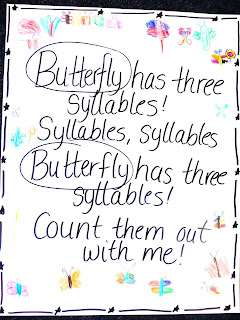 Butterfly has three
syllables!
Syllables, syllables
Butterfly has three
syllables!
Count them out
with me!